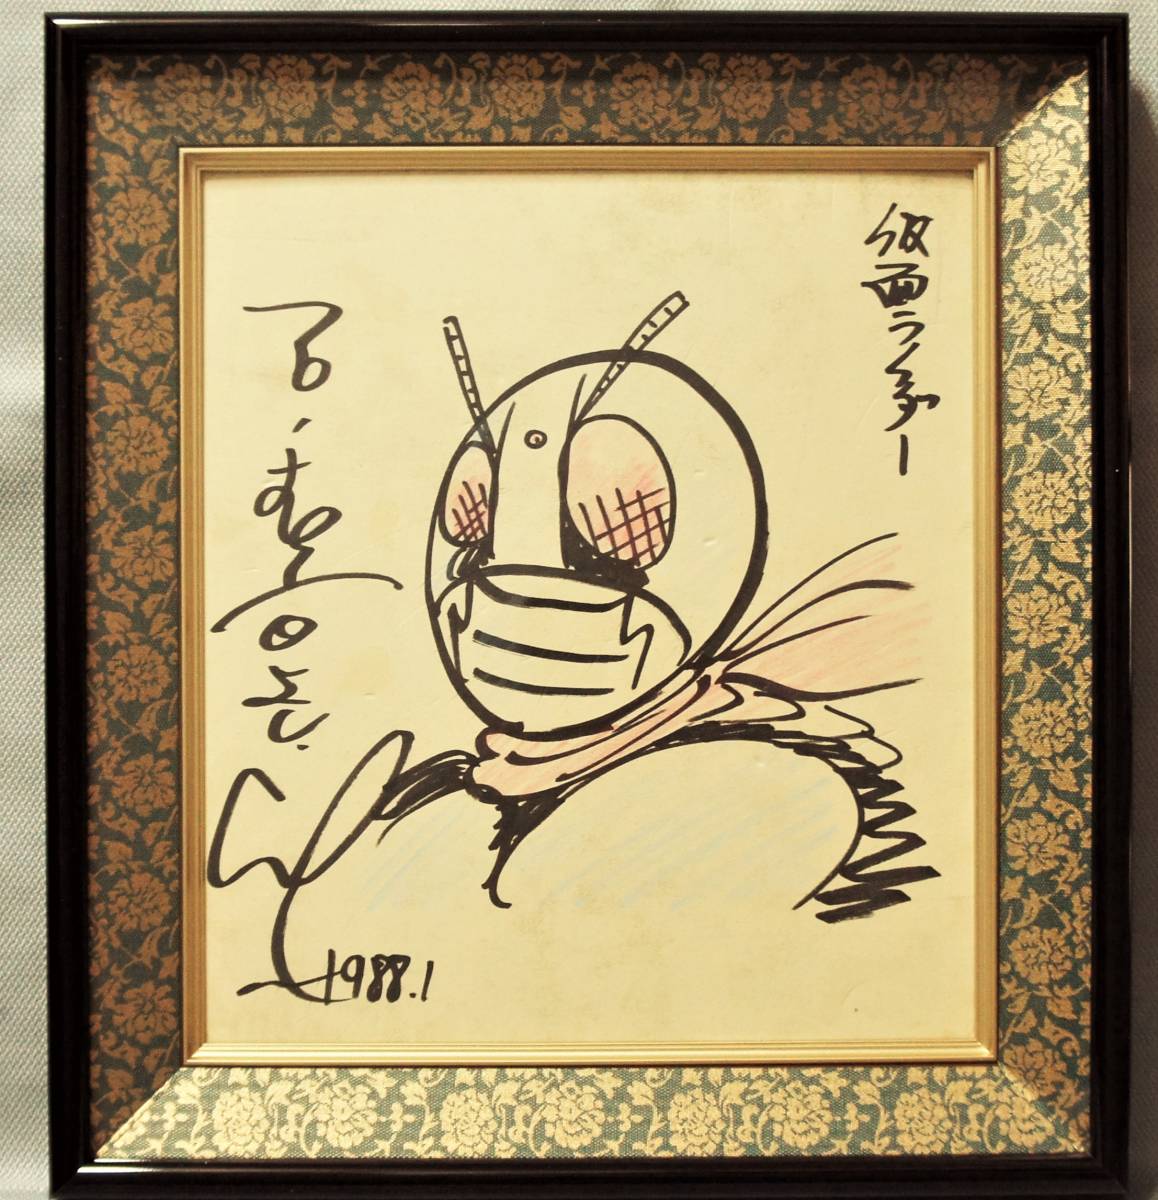 仮面ライダー
石・森章太郎
1988.1